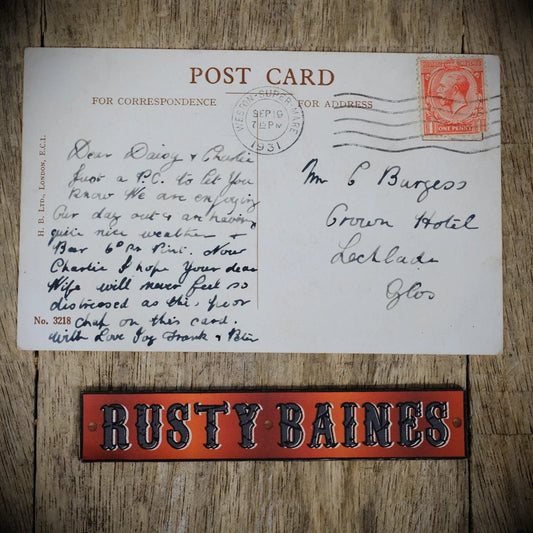 POST CARD
FOR CORRESPONDENCE
FOR ADDRESS
WESTON-SUPER-MARE
SEP 19
7 PM
1931
1 ONE PENNY
H. B. LTD., LONDON, E.C.1.
Dear Daisy & Charlie
Just a P.C. to let You
Know We are enjoying
Our day out & an having
quite nice weather &
Beer 6ᴰ Per Pint. Now
Charlie I hope Your dear
Wife will never feel so
distressed as this poor
chap on this card.
With Love Joy Frank & Peter
No. 3218
Mr C Burgess
Crown Hotel
Lechlade
Glos
RUSTY BAINES